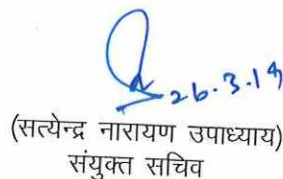 26.3.19
(सत्येन्द्र नारायण उपाध्याय)
संयुक्त सचिव